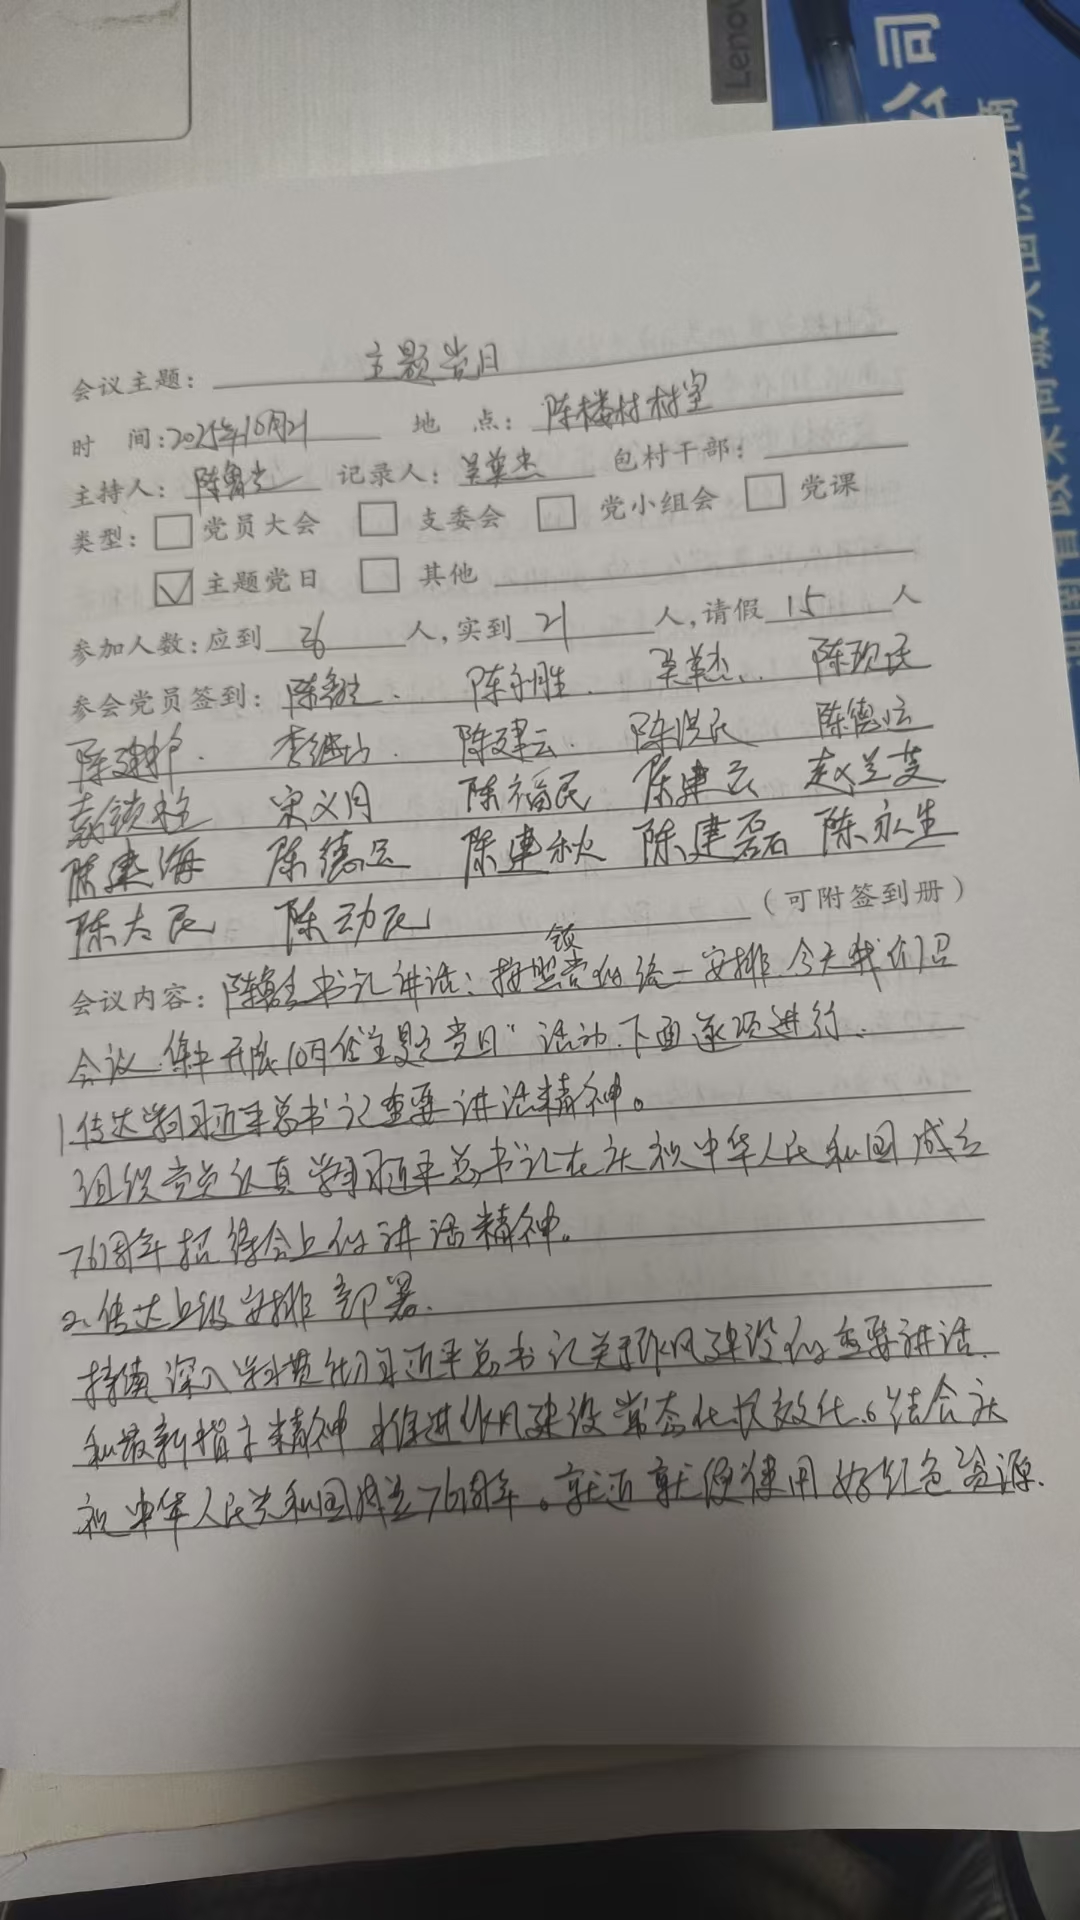 Lenov
公司
会议主题： 主题党日
时 间：2025年10月21 地 点： 陈楼村村室
主持人： 陈鲁生 记录人： 吴革杰 包村干部：
类型： 党员大会 支委会 党小组会 党课
主题党日 其他
参加人数：应到 36 人，实到 21 人，请假 15 人
参会党员签到： 陈鲁生. 陈永胜. 吴革杰. 陈现民
陈建 . 李继 . 陈建云. 陈洪民 陈德运
袁锁柱 宋义月 陈福民 陈建云 赵兰英
陈建海 陈德 陈建秋 陈建磊 陈永生
陈大民 陈动民 （可附签到册）
会议内容： 陈鲁生书记讲话：按照镇党的统一安排.今天我们召
会议.集中开展10月份主题党日"活动.下面逐项进行.
1.传达学习习近平总书记重要讲话精神。
组织党员认真学习习近平总书记在庆祝中华人民和国成立
76周年招待会上的讲话精神。
2.传达上级安排部署.
持续深入学习贯彻习近平总书记关于作风建设的重要讲话
和最新指示精神 推进作风建设常态化长效化。结合庆
祝中华人民共和国成立76周年。就近就便使用好红色资源.